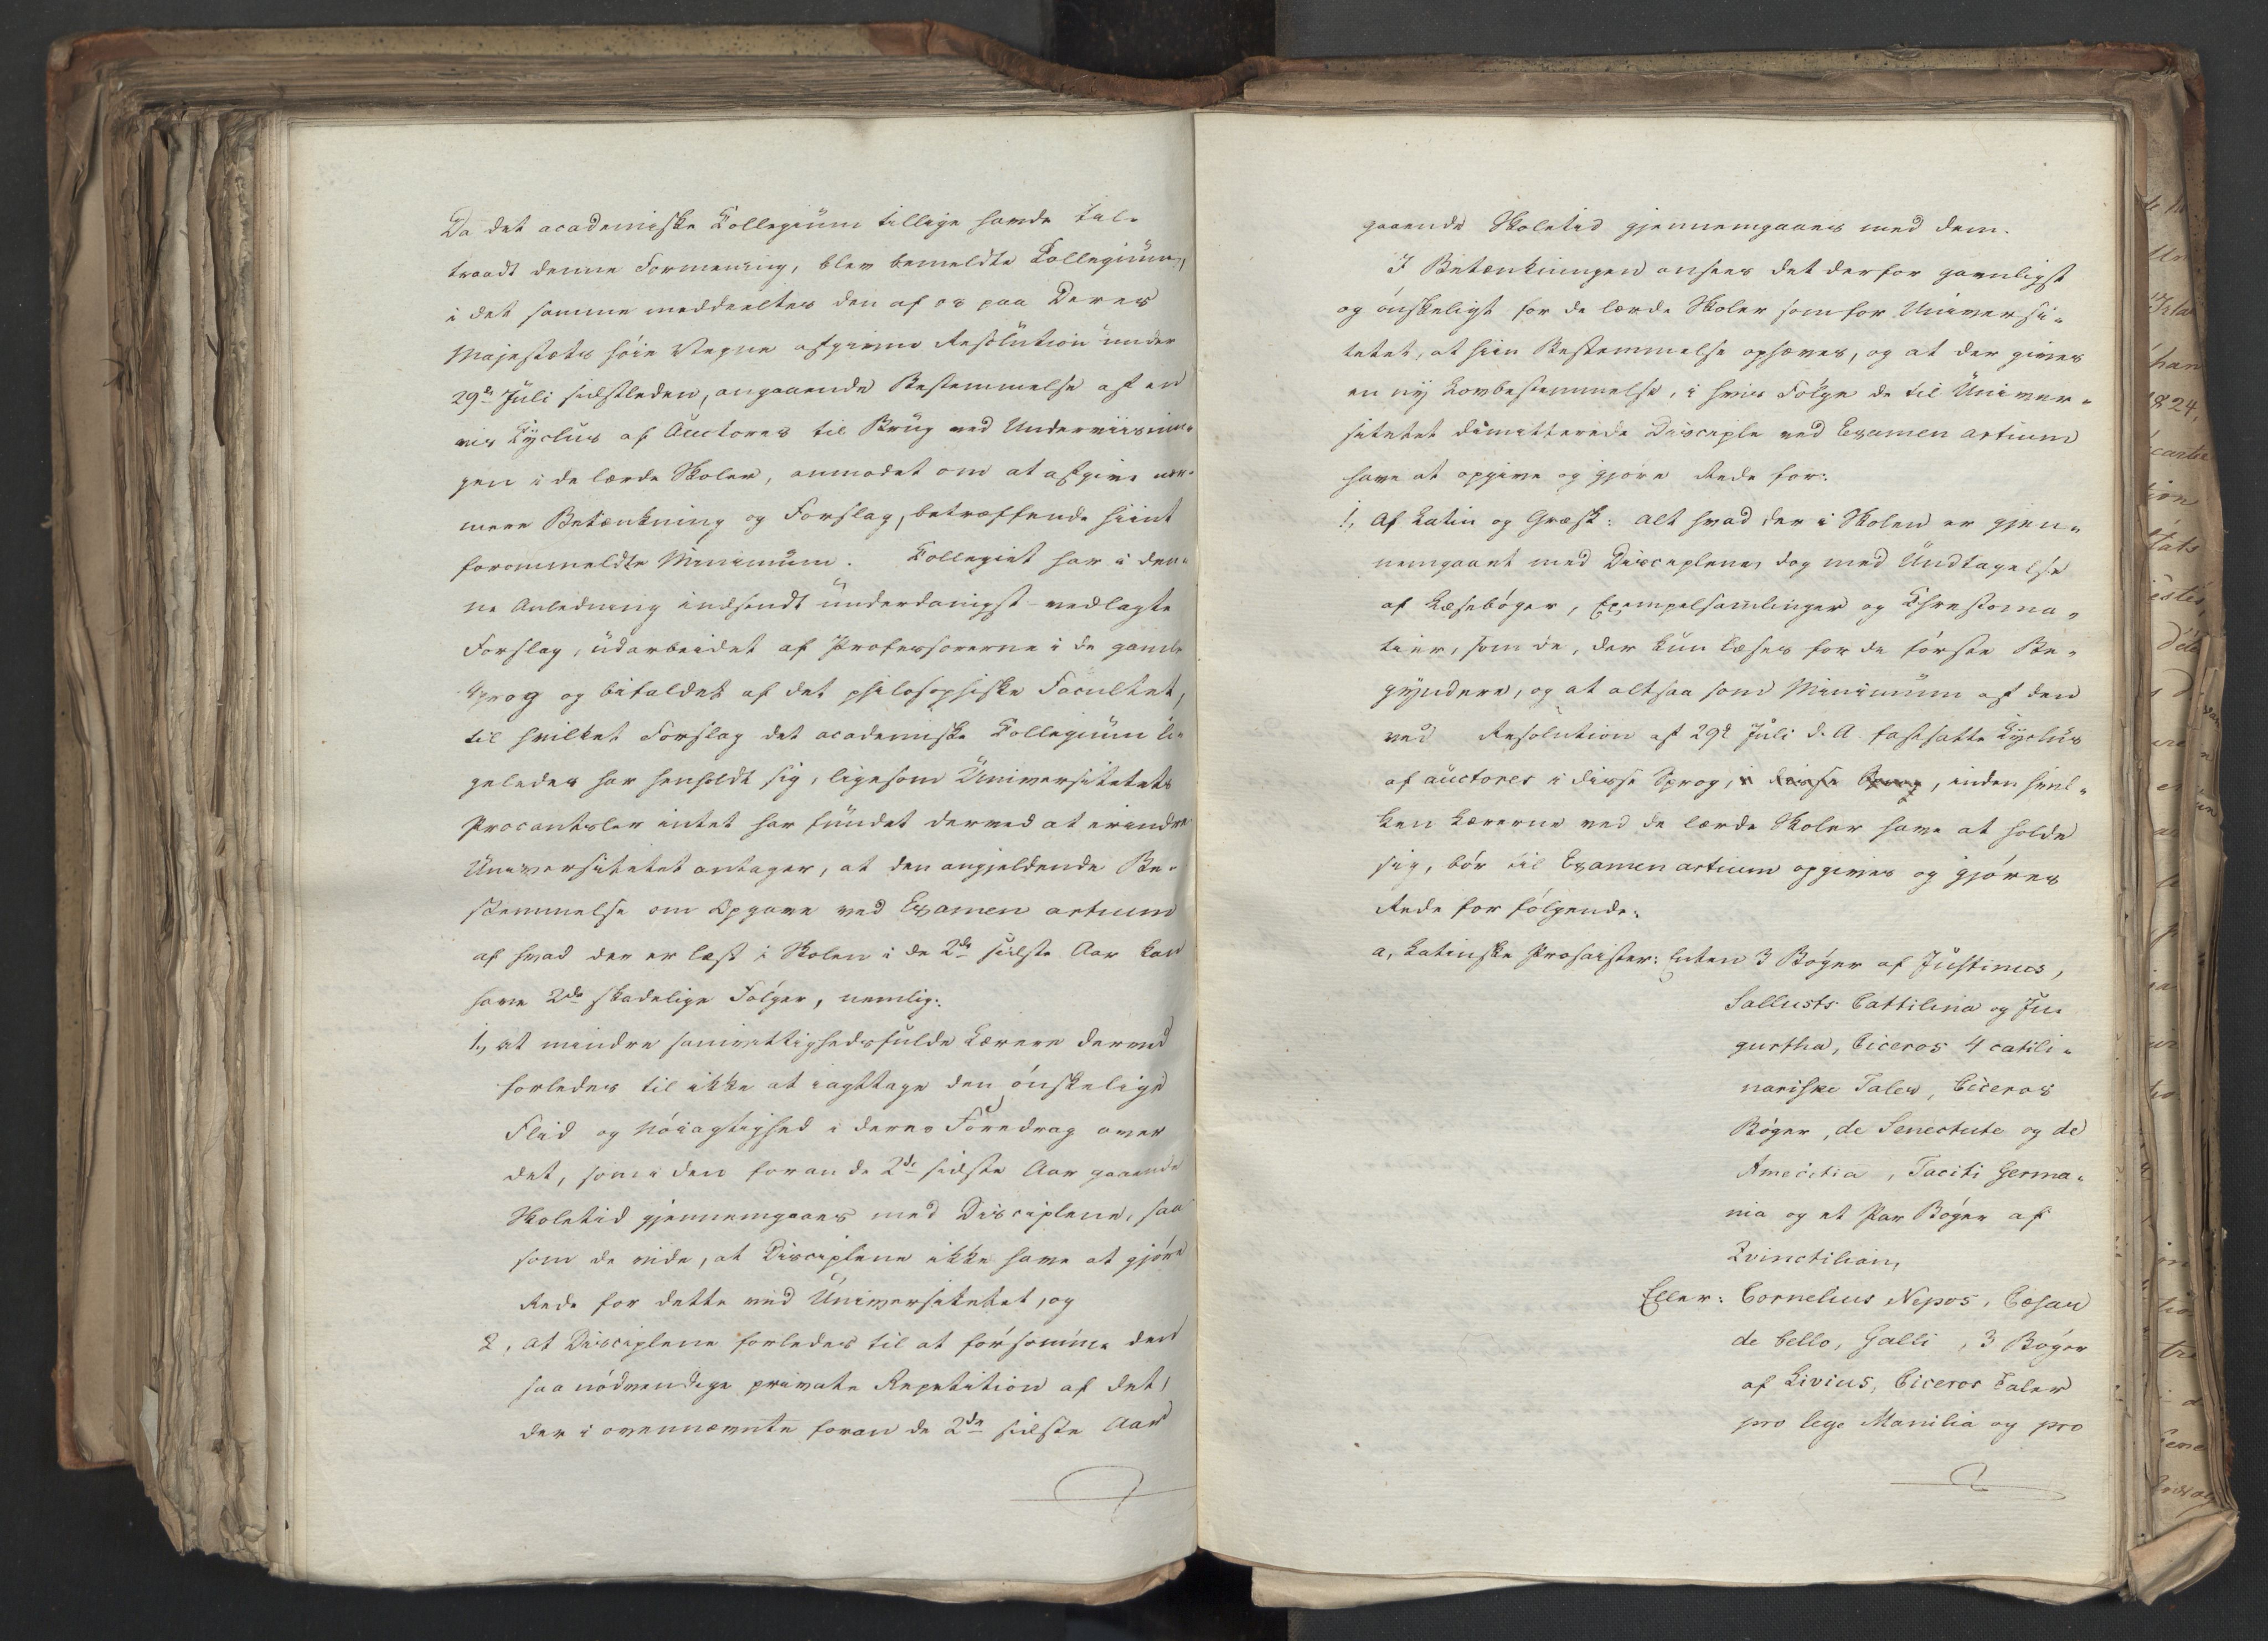 Da det academiske Collegium tillige havde til-
traadt denne Formening, blev bemeldte Collegium,
i det samme meddeeltes den af os paa Deres
Majestæts høie Vegne afgivne Resolution under
29de Juli sidstleden, angaaende Bestemmelse af en
vis Cyclus af Auctores til Brug ved Underviisnin-
gen i de lærde Skoler, anmodet om at afgive nær-
mere Betænkning og Forslag, betræffende hiint
forommeldte Minimum. Collegiet har i den-
ne Anledning indsendt underdanigst vedlagte
Forslag, udarbeidet af Professorerne i de gamle
Sprog og bifaldet af det philosophiske Facultet,
til hvilket Forslag det academiske Collegium li-
geledes har henholdt sig, ligesom Universitetets
Procantsler intet har fundet derved at erindre
Universitetet antager, at den angjeldende Be-
stemmelse om Opgave ved Examen artium
af hvad der er læst i Skolen i de 2de sidste Aar kan
have 2de skadelige Følger, nemlig:
1, at mindre samvittighedsfulde Lærere derved
forledes til ikke at iagttage den ønskelige
Flid og Nøiagtighed i deres Foredrag over
det, som i den foran de 2de sidste Aar gaaende
Skoletid gjennemgaaes med Disciplene, saa
som de vide, at Disciplene ikke have at gjøre
Rede for dette ved Universitetet, og
2, at Disciplene forledes til at forsømme den
saa nødvendige private Repetition af det,
der i ovennævnte foran de 2de sidste Aar
gaaende Skoletid gjennemgaaes med dem.
I Betænkningen ansees det derfor gavnligst
og ønskeligst for de lærde Skoler som for Universi-
tetet, at hiin Bestemmelse ophæves, og at der gives
en ny Lovbestemmelse, i hvis Følge de til Univer-
sitetet dimitterede Disciple ved Examen artium
have at opgive og gjøre Rede for:
1, Af Latin og Græsk: alt hvad der i Skolen er gjen-
nemgaaet med Disciplene, dog med Undtagelse
af Læsebøger, Exempelsamlinger og Chrestoma-
tier, som de, der kun læses for de første Be-
gyndere, og at altsaa som Minimum af den
ved Resolution af 29de Juli d. A. fastsatte Cyclus
af auctores i disse Sprog, i disse Sprog, inden hvil-
ken Lærerne ved de lærde Skoler have at holde
sig, bør til Examen artium opgives og gjøres
Rede for følgende:
a, Latinske Prosaister: Enten 3 Bøger af Justinus,
Sallusts Cattilina og Ju-
gurtha, Ciceros 4 catili-
nariske Taler, Ciceros
Bøger, de Senectute og de
Amecitia, Taciti Germa-
nia og et Par Bøger af
Qvinctilian,
Eller: Cornelius Nepos, Cæsar
de bello, Galli, 3 Bøger
af Livius, Ciceros Taler
pro lege Manilia og pro